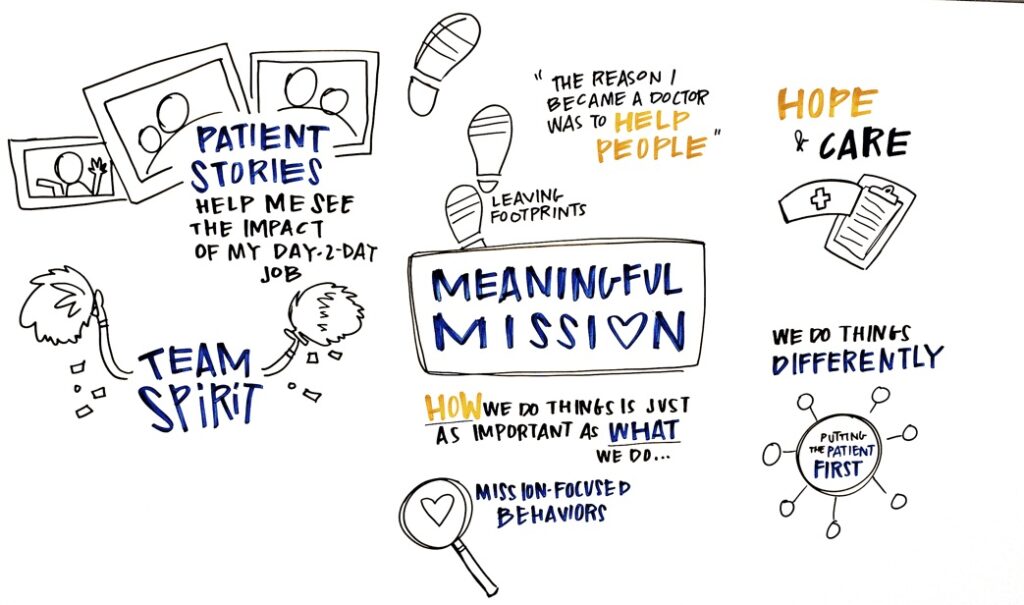 PATIENT
STORIES
HELP ME SEE
THE IMPACT
OF MY DAY-2-DAY
JOB
TEAM
SPIRIT
"THE REASON I
BECAME A DOCTOR
WAS TO HELP
PEOPLE"
LEAVING
FOOTPRINTS
MEANINGFUL
MISSION
HOW WE DO THINGS IS JUST
AS IMPORTANT AS WHAT
WE DO...
MISSION-FOCUSED
BEHAVIORS
HOPE
& CARE
WE DO THINGS
DIFFERENTLY
PUTTING
THE PATIENT
FIRST